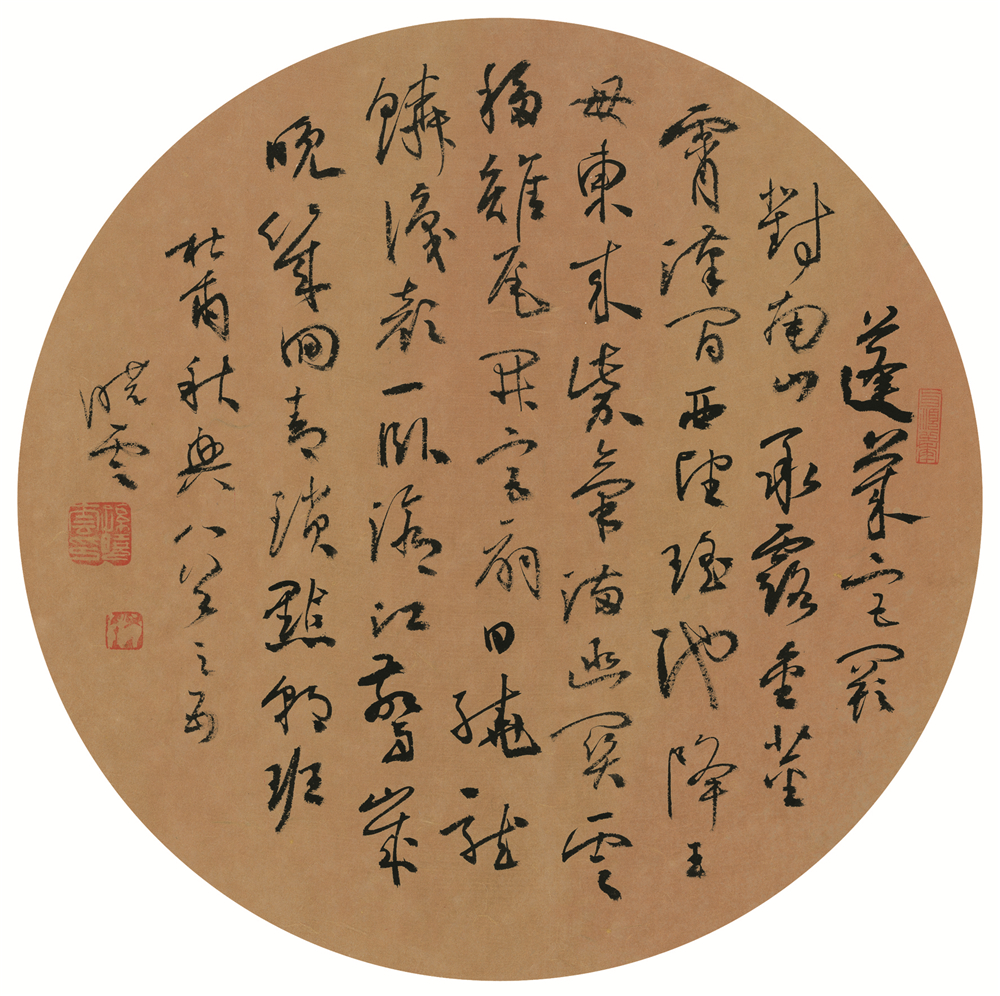 蓬萊宮闕
對南山承露金莖
霄漢間西望瑤池降王
母東來紫氣滿函關雲
移雉尾開宮扇日繞龍
鱗識顏一臥滄江驚歲
晚幾回青瑣點朝班
杜甫秋興八首之五
曉雲